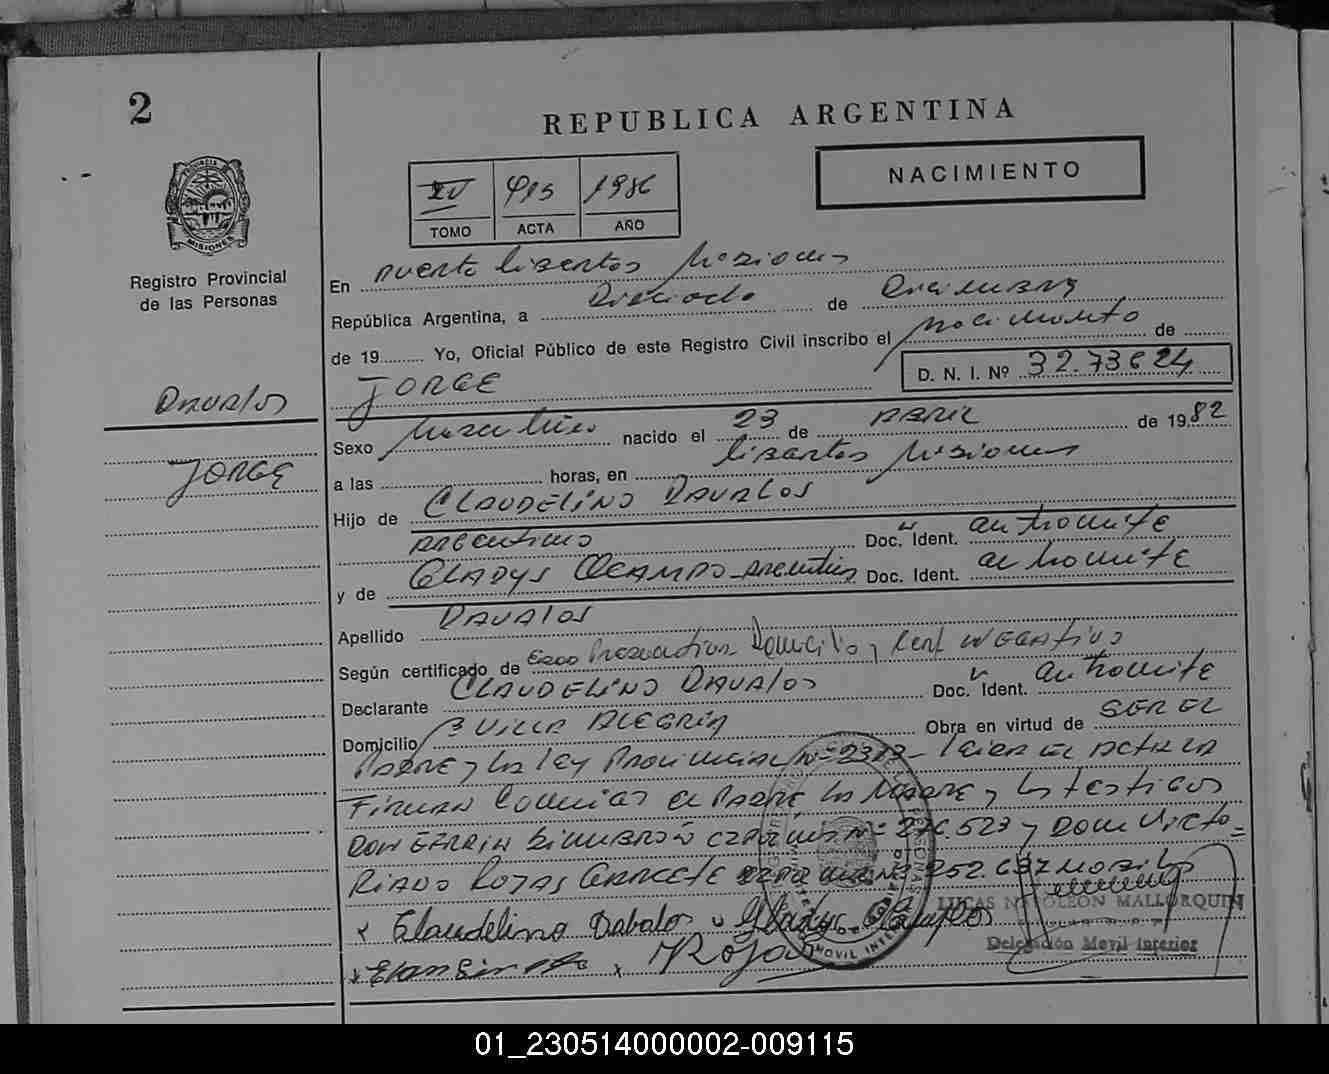 2
REPUBLICA ARGENTINA
NACIMIENTO
PROVINCIA DE
MISIONES
Registro Provincial
de las Personas
XV 413 1986
TOMO ACTA AÑO
En Puerto Libertad Misiones
República Argentina, a Dieciocho de Diciembre
de 19........ Yo, Oficial Público de este Registro Civil inscribo el Nacimiento de
JORGE
D. N. I. Nº 32.73624
DAVALOS
JORGE
Sexo Masculino nacido el 23 de ABRIL de 1982
a las horas, en Libertad Misiones
Hijo de CLAUDELINO DAVALOS
ARGENTINO Doc. Ident.
y de GLADYS OCAMPO Argentina Doc. Ident.
Apellido DAVALOS
Según certificado de Domicilio y Cert NEGATIVO
Declarante CLAUDELINO DAVALOS Doc. Ident.
Domicilio Bº VILLA ALEGRIA Obra en virtud de SER EL
PADRE y la ley Provincial Nº 2372 - Leida el ACTA LA
FIRMAN Conmigo el PADRE, la MADRE y los testigos
DON Nº 276.523 y DON Victo=
RIANO ROJAS Nº 952.637
Claudelino Dabalos Gladys
Rojas
LUCAS NAPOLEON MALLORQUIN
Delegación Movil Interior
01_230514000002-009115